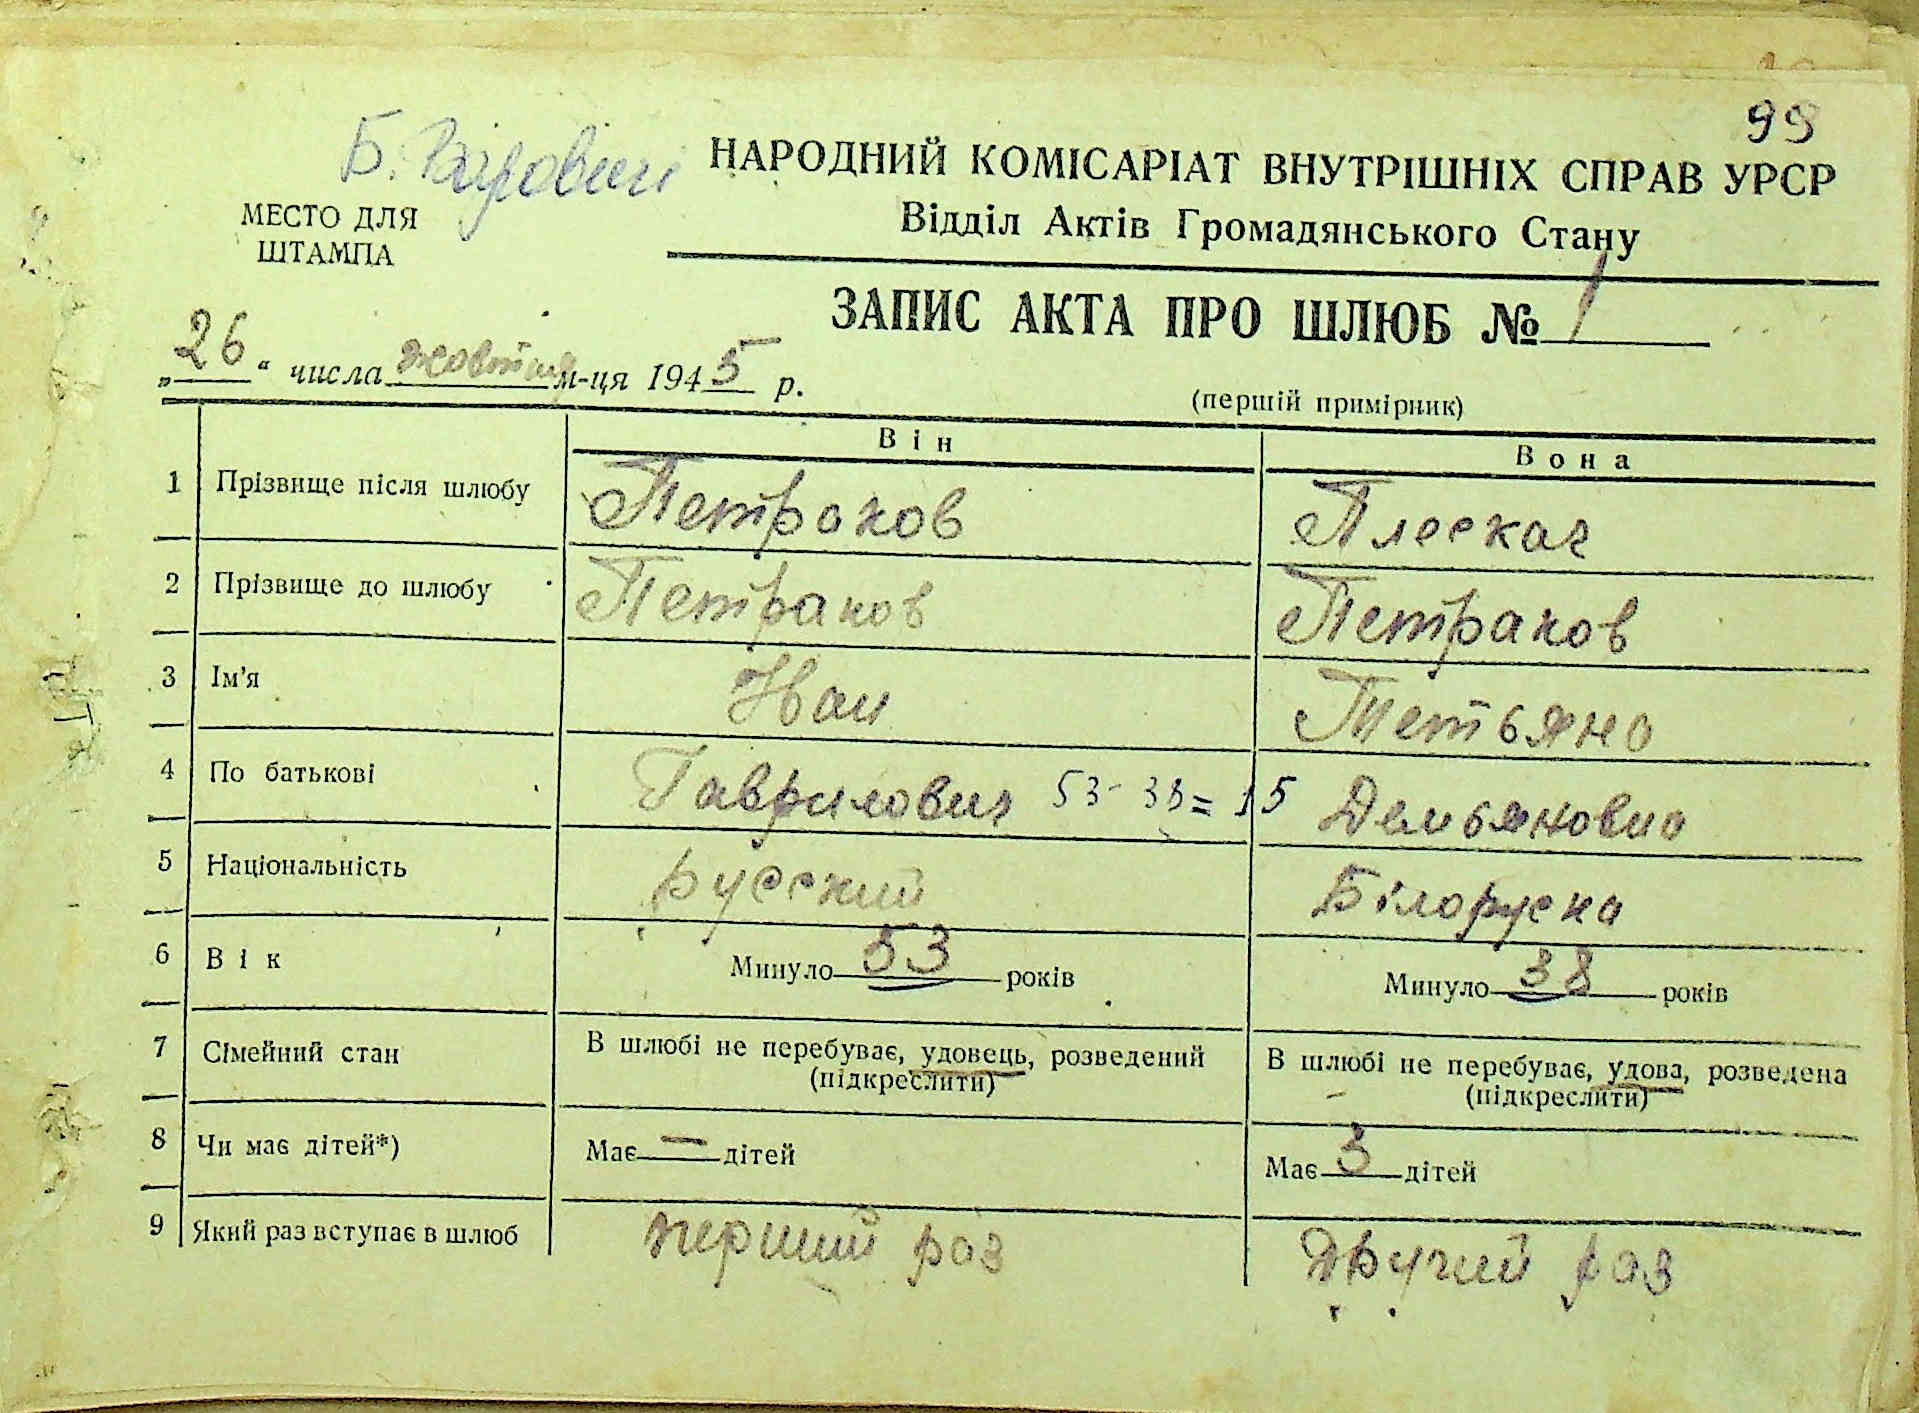 99
Б.
НАРОДНИЙ КОМІСАРІАТ ВНУТРІШНІХ СПРАВ УРСР
МЕСТО ДЛЯ
ШТАМПА
Відділ Актів Громадянського Стану
ЗАПИС АКТА ПРО ШЛЮБ № 1
„26“ числа жовтня м-ця 1945 р.
(першій примірник)
Він Вона
1 Прізвище після шлюбу Петраков Плескач
2 Прізвище до шлюбу Петраков Петраков
3 Ім'я Іван Тетьяна
4 По батькові Гаврилович 53-38=15 Демьяновна
5 Національність русский Білоруска
6 Вік Минуло 53 років Минуло 38 років
7 Сімейний стан В шлюбі не перебуває, удовець, розведений В шлюбі не перебуває, удова, розведена
(підкреслити) (підкреслити)
8 Чи має дітей*) Має — дітей Має 3 дітей
9 Який раз вступає в шлюб перший раз другий раз